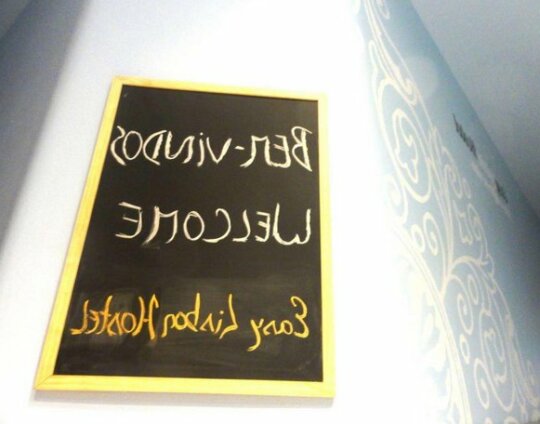 BEM-VINDOS
WELCOME
Easy Lisbon Hostel